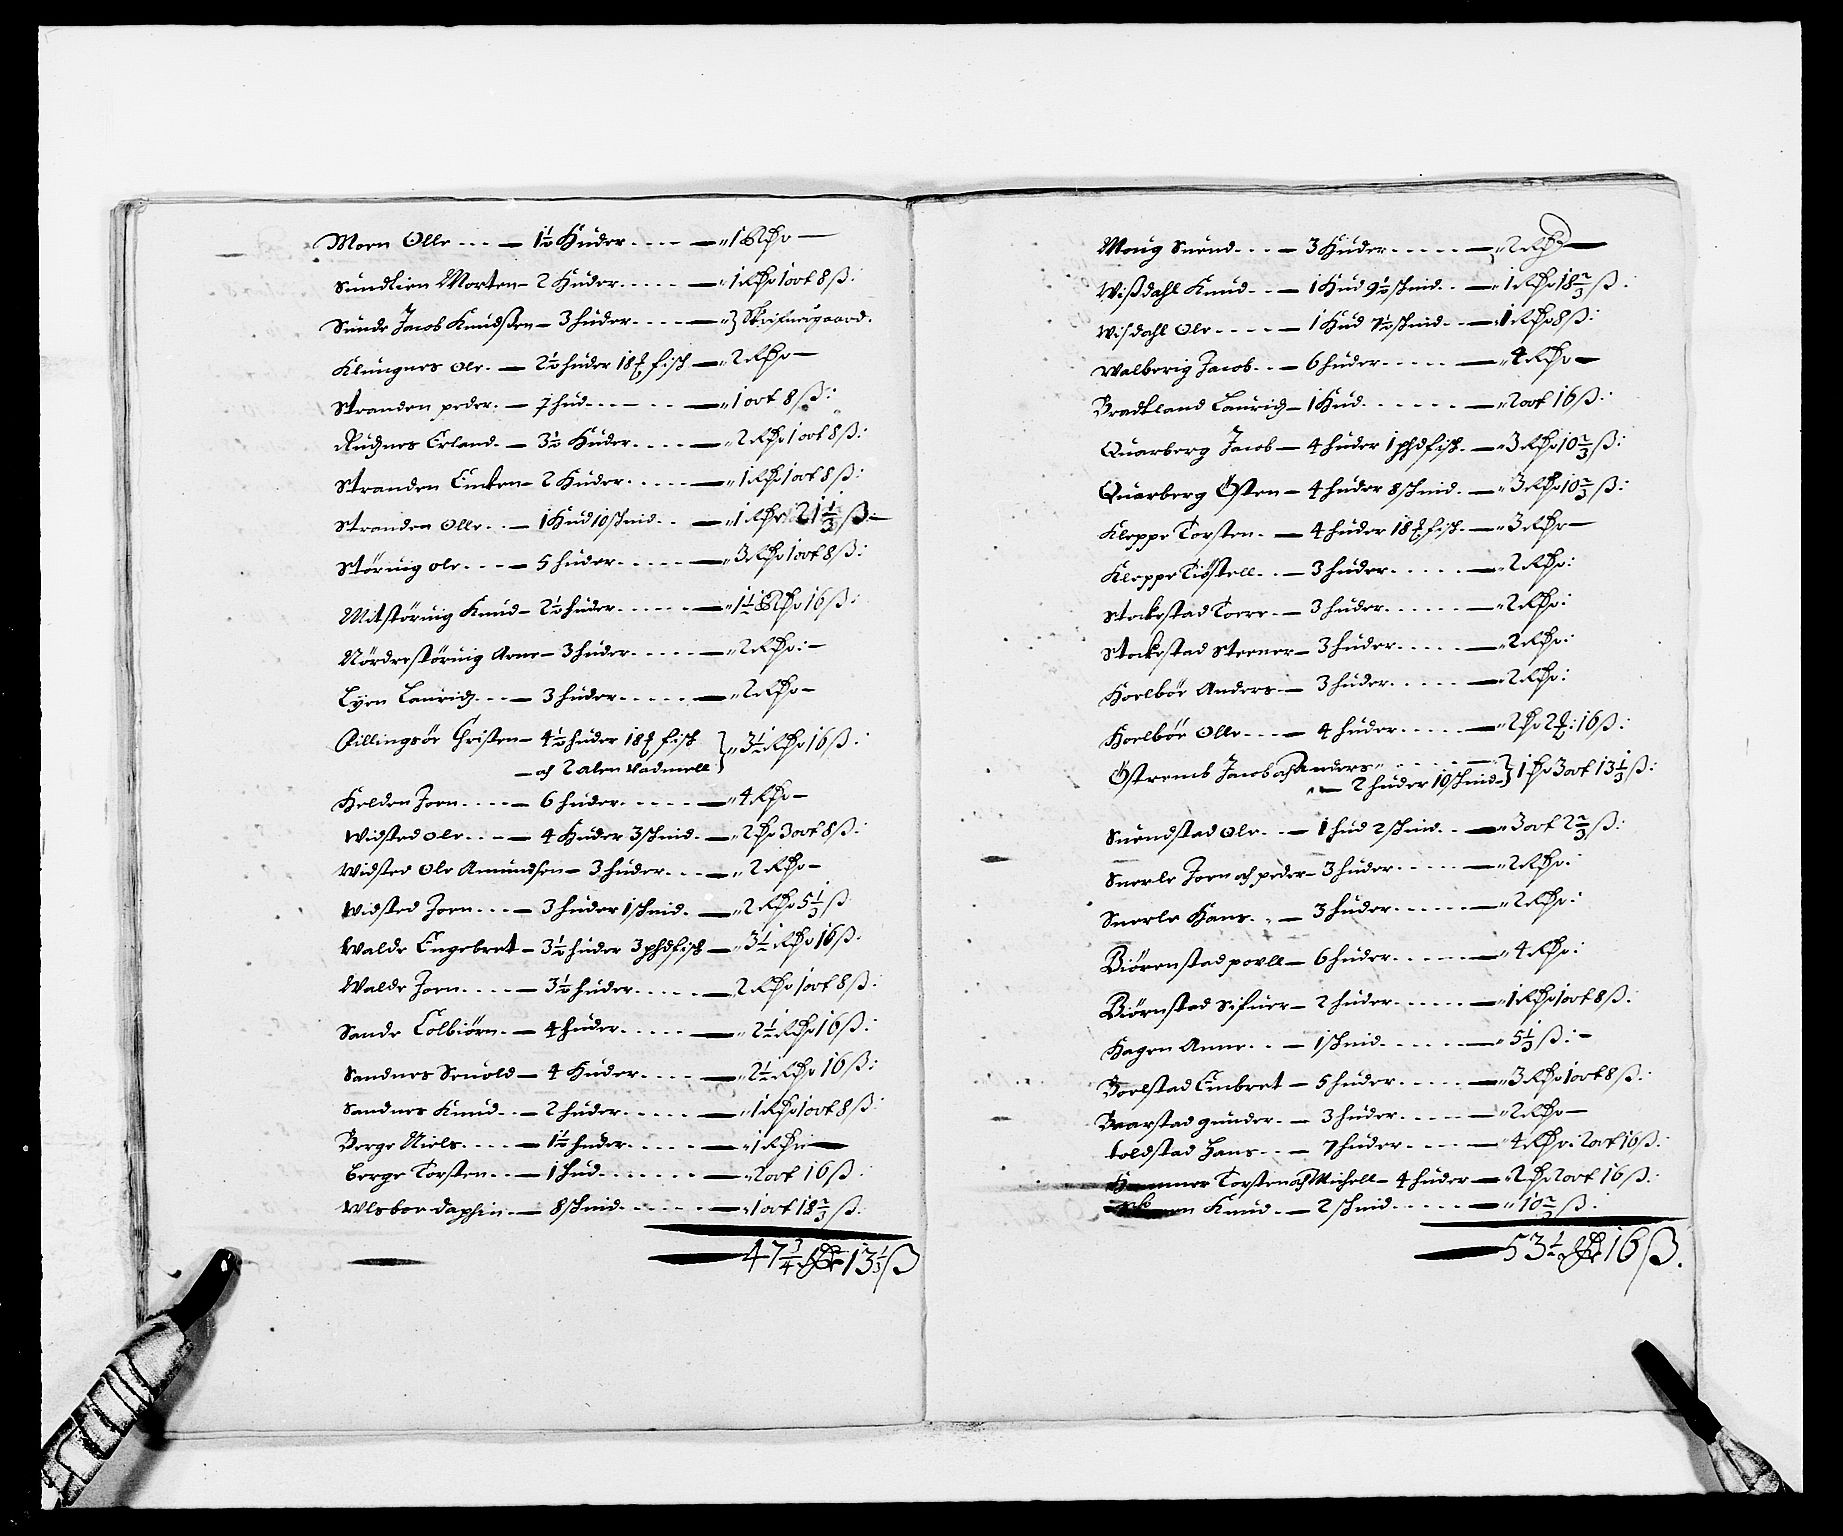 Moen Olle - - - 1½ Huder - - - 1 Rdr
Sundlien Morten - 2 Huder - - - 1 Rdr 1 ort 8 ß:
Sunde Jacob Knudssen - 3 huder - - - Skrifuergaard.
Klungnes Ole - 2½ huder 18 fisk - 2 Rdr
Stranden peder - hud - - - 1 ort 8 ß:
Erland - 3½ Huder - - - 2 Rdr 1 ort 8 ß:
Stranden - 2 Huder - - - 1 Rdr 1 ort 8 ß:
Stranden Olle - - - 1 Hud 10 schind - - - 1 Rdr 21⅓ ß
Störuig ole - - - 5 huder - - - 3 Rdr 1 ort 8 ß:
Mitstöruig Knud - 2½ huder - - - 1½ Rdr 16 ß:
Nördrestöruig Arne - 3 huder - - - 2 Rdr:
Lyen Lauridz - - - 3 huder - - - 2 Rdr
Christen - 4½ huder 18 fisk
och 2 alen vadmell } 3½ Rdr 16 ß:
Helden Joen - - - 6 huder - - - 4 Rdr
Widsted Ole - - - 4 Huder 3 schind - 2 Rdr 3 ort 8 ß:
Widsted Ole Amundsen - 3 huder - - - 2 Rdr
Widsted Joen - - - 3 huder 1 schind - 2 Rdr 5⅓ ß
Walde Engebret - 3½ huder 3 phd fisk - 3½ Rdr 16 ß:
Walde Joen - - - 3½ huder - - - 2 Rdr 1 ort 8 ß:
Sande Colbiörn - 4 huder - - - 2½ Rdr 16 ß:
Sandnes Seuold - 4 Huder - - - 2½ Rdr 16 ß:
Sandnes Knud - - 2 huder - - - 1 Rdr 1 ort 8 ß:
Berge Niels - - - 1½ huder - - - 1 Rdr
Berge Torsten - - 1 hud - - - 2 ort 16 ß:
- 8 schind - - - 1 ort 18⅔ ß:
47¾ Rdr 13⅓ ß
Moug Suend - - - 3 Huder - - - 2 Rdr
Wissdahl Knud - - 1 Hud 9½ schind - - 1 Rdr 18⅔ ß:
Wisdahl Ole - - - 1 Hud 7½ schind - - 1 Rdr 8 ß:
Walberig Jacob - - 6 huder - - - 4 Rdr
Bradtland Lauridz - 1 Hud - - - 2 ort 16 ß:
Quarberg Jacob - 4 huder 1 phd fisk - 3 Rdr 10⅔ ß:
Quarberg Östen - 4 huder 8 schind - 3 Rdr 10⅔ ß:
Kleppe Torsten - 4 huder 18 fisk - 3 Rdr
Kleppe Kiöstell - - 3 huder - - - 2 Rdr:
Stockestad Tore - - 3 huder - - - 2 Rdr:
Stockestad Steener - 3 huder - - - 2 Rdr:
Hoelböe Anders - 3 huder - - - 2 Rdr:
Hoelböe Olle - - - 4 huder - - - 2 Rdr 2 : 16 ß:
Östremb Jacob och Anders
2 huder 10 schind } 1 Rdr 3 ort 13⅓ ß:
Suendstad Ole - - 1 hud 2 schind - - 3 ort 2⅔ ß:
Snerle Joen och peder - 3 huder - - - 2 Rdr:
Snerle Hans - - 3 huder - - - 2 Rdr:
Biörenstad povll - 6 huder - - - 4 Rdr:
Biörnstad Sifuer - 2 huder - - - 1 Rdr 1 ort 8 ß:
Hagen Anne - - - 1 schind - - - 5⅓ ß:
Boelstad Embret - 5 huder - - - 3 Rdr 1 ort 8 ß:
Baarstad gunder - - 3 huder - - - 2 Rdr
toldstad Hans - - - 7 huder - - - 4 Rdr 2 ort 16 ß:
Hammer Torsten och Michell - 4 huder - 2 Rdr 2 ort 16 ß:
Knud - - 2 schind - - - 10⅔ ß:
53½ Rdr 16 ß.